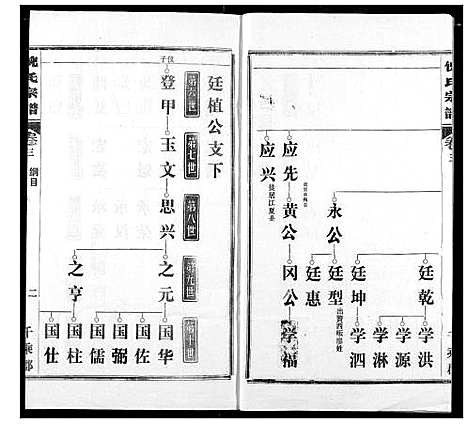 倪氏宗譜
卷三
应先
应兴
徙居江夏县
黄公
永公
冈公
廷惠
廷型
出赘西畈廖姓
廷坤
廷乾
学福
学泗
学淋
学源
学洪
廷植公支下
第六世
第七世
第八世
第九世
第十世
登甲
玉文
思兴
之元
之亨
国华
国佐
国弼
国儒
国柱
国仕
倪氏宗譜
卷之三
纲目
二
千乘郡